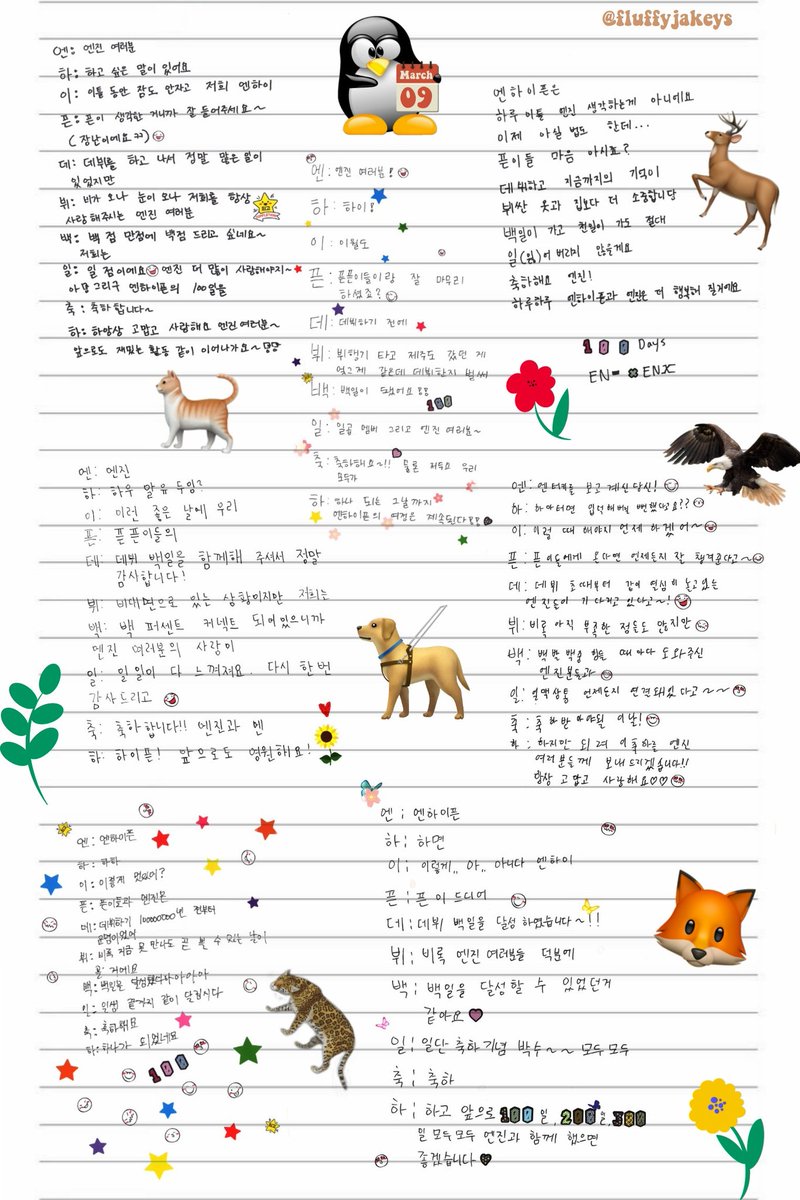 @fluffyjakeys
March
09
엔: 엔진 여러분
하: 하고 싶은 말이 있어요
이: 이틀 동안 잠도 안자고 저희 엔하이
픈: 픈이 생각한 거니까 잘 들어주세요~
(장난이에요 ㅋㅋ)
데: 데뷔를 하고 나서 정말 많은 일이
있었지만
뷔: 비가 오나 눈이 오나 저희를 항상
사랑해주시는 엔진 여러분
백: 백 점 만점에 백점 드리고 싶네요~
저희는
일: 일 점이에요 엔진 더 많이 사랑해야지~
아 맞 그리구 엔하이픈의 100일을
축: 축하합니다~
하: 하앙상 고맙고 사랑해요 엔진 여러분~
앞으로도 재밌는 활동 같이 이어나가요~
엔: 엔진 여러분!
하: 하이?
이: 이월도
픈: 픈픈이들이랑 잘 마무리
하셨죠?
데: 데뷔하기 전에
뷔: 뷔행기 타고 제주도 갔던 게
엊그제 같은데 데뷔한지 벌써
백: 백일이 됐어요
100
일: 일곱 멤버 그리고 엔진 여러분~
축: 축하해요~!! 물론 저두요 우리
모두가
하: 하나 되는 그날까지
엔하이픈의 여정은 계속된다
엔하이픈은
하루 이틀 엔진 생각하는게 아니에요
이제 아실 법도 한데...
픈이들 마음 아시죠?
데뷔하고 지금까지의 기억이
뷔싼 옷과 집보다 더 소중합니당
백일이 가고 천일이 가도 절대
일(잃)어버리지 않을게요
축하해요 엔진!
하루하루 엔하이픈과 엔진은 더 행복해 질거예요
100 Days
EN-
엔: 엔진
하: 하우 알 유 두잉?
이: 이런 좋은 날에 우리
픈: 픈픈이들의
데: 데뷔 백일을 함께해 주셔서 정말
감사합니다!
뷔: 비대면으로 있는 상황이지만 저희는
백: 백 퍼센트 커넥트 되어있으니까
엔진 여러분의 사랑이
일: 일일이 다 느껴져요. 다시 한번
감사드리고
축: 축하합니다!! 엔진과 엔
하: 하이픈! 앞으로도 영원해요!
엔: 엔터키를 보고 계신 당신!
하: 하마터면 입덕해버릴 뻔했다고요??
이: 이럴 때 해야지 언제 하겠어~
픈: 픈이들에게 온다면 언제든지 잘 챙겨준다고~
데: 데뷔 초때부터 같이 열심히 놀고있는
엔진들이 기다리고 있다고~!
뷔: 비록 아직 부족한 점들도 많지만
백: 백발백중 힘들 때마다 도와주신
엔진분들과
일: 일맥상통 언제든지 연결돼있다고~~
축: 축하받아야될 이날!
하: 하지만 되려 이 축하를 엔진
여러분들께 보내드리겠습니다!!
항상 고맙고 사랑해요♡♡
엔: 엔하이픈
하: 하하
이: 이렇게 멋있어?
픈: 픈이들과 엔진은
데: 데뷔하기 10000000년 전부터
운명이었어
뷔: 비록 지금 못 만나도 곧 볼 수 있는 날이
올 거에요
백: 백일을 달성했다아아아아
일: 일생 끝까지 같이 달립시다
축: 축하해요
하: 하나가 되었네요
100
엔; 엔하이픈
하; 하면
이; 이렇게,, 아.. 아니다 엔하이
픈; 픈이 드디어
데; 데뷔 백일을 달성 하였습니다~!!
뷔; 비록 엔진 여러분들 덕분에
백; 백일을 달성할 수 있었던거
같아요
일; 일단 축하기념 박수~~ 모두 모두
축; 축하
하; 하고 앞으로 100일, 200일, 300
일 모두 모두 엔진과 함께 했으면
좋겠습니다